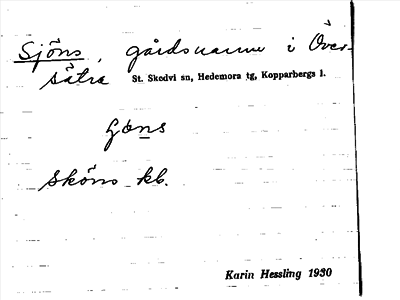 Sjöns, gårdsnamn i Över-
sätra St. Skedvi sn, Hedemora tg, Kopparbergs l.
Sköns kb.
Karin Hessling 1930